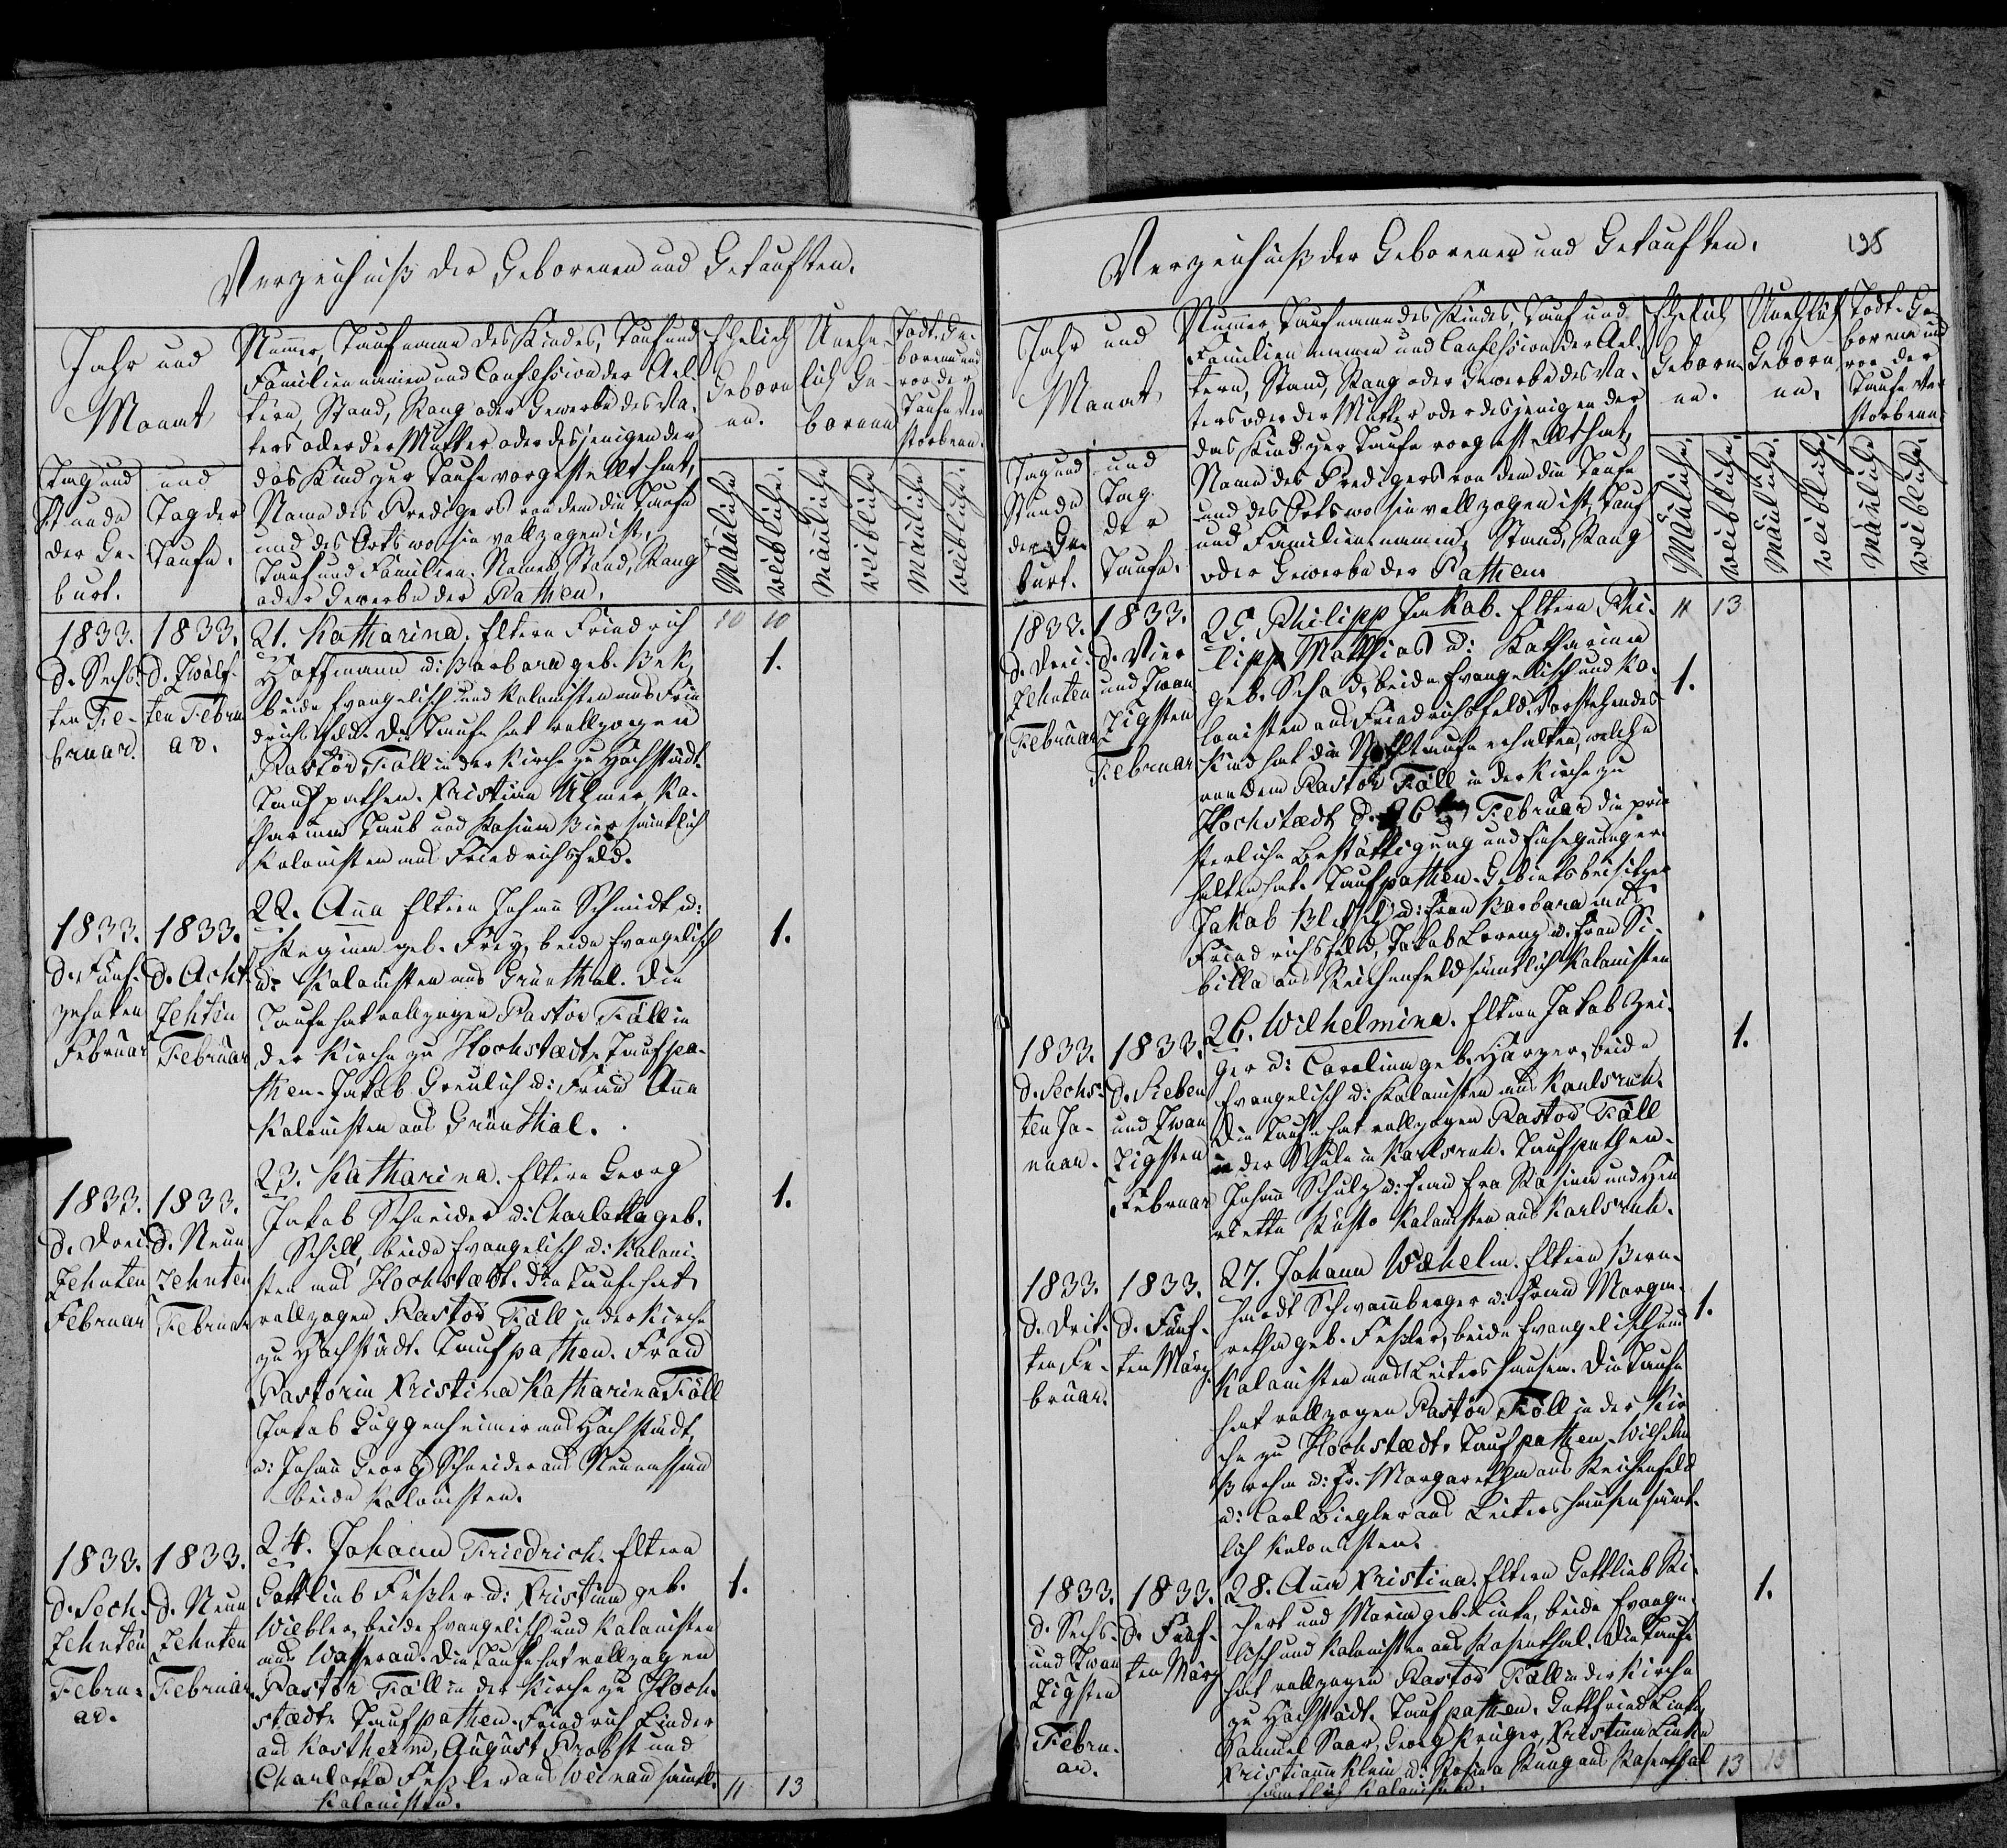 Verzeichniß der Geborenen und Getauften.
Jahr und
Monat
Tag und
Stunde
der Ge-
burt.
und
Tag der
Taufe.
Numer, Taufname des Kindes, Tauf und
Familien namen und Confession der Ael-
tern, Stand, Rang oder Gewerbe des Va-
ters oder der Mutter oder desjenigen der
das Kind zur Taufe vorgestellt hat,
Name des Predigers von dem die Taufe
und des Orts wo sie vollzogen ist,
Tauf und Familien-Namen Stand, Rang
oder Gewerbe der Pathen.
Ehelich
Geborn
en.
Unehe-
lich Ge-
borene
Todt-Ge-
borene und
vor der
Taufe Ver
storbene.
Mänliche
weibliche
Mänliche
weibliche
Mänliche
weibliche
10 10
1833.
d. Sechs-
ten Fe-
bruar.
1833.
d. Zwölf-
ten Febru
ar.
21. Katharina. Eltern Friedrich
Hoffmann u: Barbara geb. Bek,
beide Evangelisch und Kolonisten aus Frie
drichsfeld. Die Taufe hat vollzogen
Pastor Föll in der Kirche zu Hochstädt.
Taufpathen. Kristina Ulmer, Ka-
tharina Taub und Rosina Bier sämtlich
Kolonisten aus Friedrichsfeld.
1.
1833.
d. Fünf-
zehnten
Februar
1833.
d. Acht-
zehnten
Februar
22. Anna Eltern Johann Schmidt u:
Regina geb. Frey, beide Evangelisch
u: Kolonisten aus Grünthal. Die
Taufe hat vollzogen Pastor Föll in
der Kirche zu Hochstædt. Taufpa-
then. Jakob Greulich u: Frau Anna
Kolonisten aus Grünthal.
1.
1833.
d. Drei-
Zehnten
Februar
1833.
d. Neun
Zehnten
Februar
23. Katharina. Eltern Georg
Jakob Schneider u: Charlotta geb.
Schill, beide Evangelisch u: Koloni-
sten aus Hochstædt. Die Taufe hat
vollzogen Pastor Föll in der Kirche
zu Hochstädt. Taufpathen. Frau
Pastorin Kristina Katharina Föll
Jakob Luggenheimer aus Hochstädt,
u: Johann Georg Schneider aus
beide Kolonisten.
1.
1833.
d. Sech-
Zehnten
Febru-
ar.
1833.
d. Neun
Zehnten
Februar.
24. Johann Friedrich. Eltern
Gottlieb Feßler u: Kristina geb.
Wiebler, beide Evangelisch und Kolonisten
aus Wasserau. Die Taufe hat vollzogen
Pastor Föll in der Kirche zu Hoch-
stædt. Taufpathen. Friedrich Linder
aus Kostheim, August Probst und
Charlotta Feßler aus Weinau sämtl.
Kolonisten.
1.
11 13
Verzeichniß der Geborenen und Getauften.
Jahr und
Monat
Tag und
Stunde
der Ge-
burt.
und
Tag
der
Taufe.
Numer Taufname des Kindes, Tauf und
Familien namen und Confession der Ael-
tern, Stand, Rang oder Gewerbe des Va-
ters oder der Mutter oder desjenigen der
das Kind zur Taufe vorgestellt hat,
Name des Predigers von dem die Taufe
und des Orts wo sie vollzogen ist, Tauf
und Familien namen, Stand, Rang
oder Gewerbe der Pathen
Ehelich
Geborn-
en.
Unehlich
Geborn
en.
Todt-Ge-
borene und
vor der
Taufe Ver
storbene
Mänliche
weibliche
Mänliche
weibliche
Mänliche
weibliche
11 13
1833.
d. Drei-
Zehnten
Februar
1833.
d. Vier
und Zwan
Zigsten
Februar
25. Philipp Jakob. Eltern Phi-
lipp Matthias u: Katharina
geb. Schad, beide Evangelisch und Ko-
lonisten aus Friedrichsfeld. Vorstehendes
Kind hat die Nothtaufe erhalten, welche
von dem Pastor Föll in der Kirche zu
Hochstædt d. 26ten Februar die prie
sterliche Bestättigung und Einsegnung er-
halten hat. Taufpathen. Gebietsbeisitzer
Jakob u: Frau Barbara aus
Friedrichsfeld, Jakob Lorenz u: Frau Si-
billa aus Reichenfeld sämtlich Kolonisten
1.
1833.
d. Sechs-
ten Ja-
nuar.
1833.
d. Sieben
und Zwan
Zigsten
Februar
26. Wilhelmina. Eltern Jakob Zei-
ger u: Carolina geb. Harzer, beide
Evangelisch u: Kolonisten aus Karlsruh.
Die Taufe hat vollzogen Pastor Föll
in der Schule in Karlsruh. Taufpathen-
Johann Schulz u: Frau Eva Rosina und Hen
rietta Kolonisten aus Karlsruh.
1.
1833.
d. Drit-
ten Fe-
bruar.
1833.
d. Fünf-
ten März
27. Johann Wilhelm. Eltern Bern-
hardt Schwammberger u: Frau Marga-
retha geb. Feßler, beide Evangelisch und
Kolonisten aus Leitershausen. Die Taufe
hat vollzogen Pastor Föll in der Kir
che zu Hochstædt. Taufpathen. Wilhelm
Brehm u: Fr. Margaretha aus Reichenfeld
u: Carl Ziegler aus Leitershausen sämt-
lich Kolonisten.
1.
1833.
d. Sechs-
und Zwan
Zigsten
Febru-
ar.
1833.
d. Fünf-
ten März
28. Anna Kristina. Eltern Gottlieb Ri-
chert und Maria geb. Linke, beide Evange-
lisch und Kolonisten aus Rosenthal. Die Taufe
hat vollzogen Pastor Föll in der Kirche
zu Hochstädt. Taufpathen. Gottfried Linke,
Samuel Saar, Georg Krüger, Kristina Linke
Kristianna Klein u: Rosina Rung aus Rosenthal
sämtlich Kolonisten.
1.
13 15